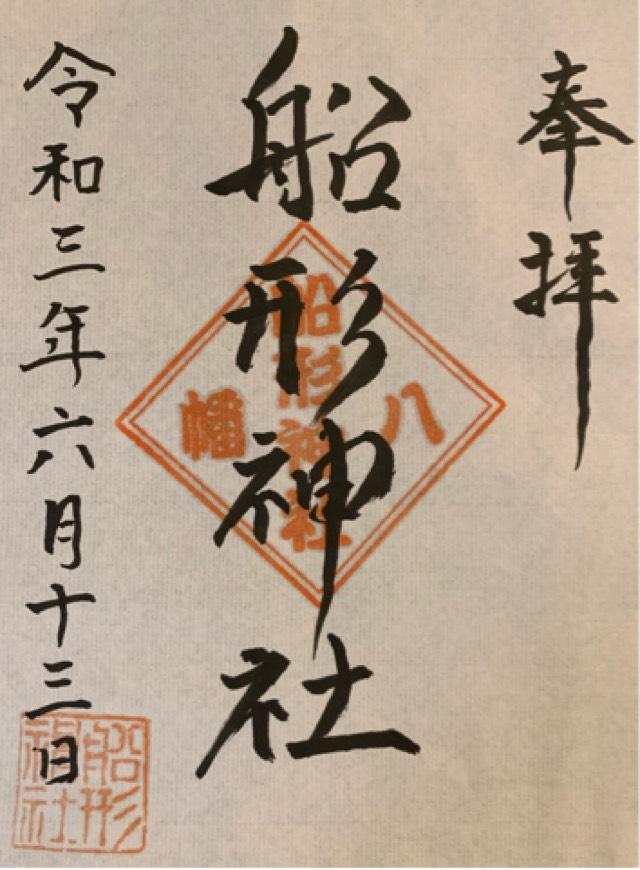 奉拝
船形神社
八幡
船形神社
令和三年六月十三日
船形
神社